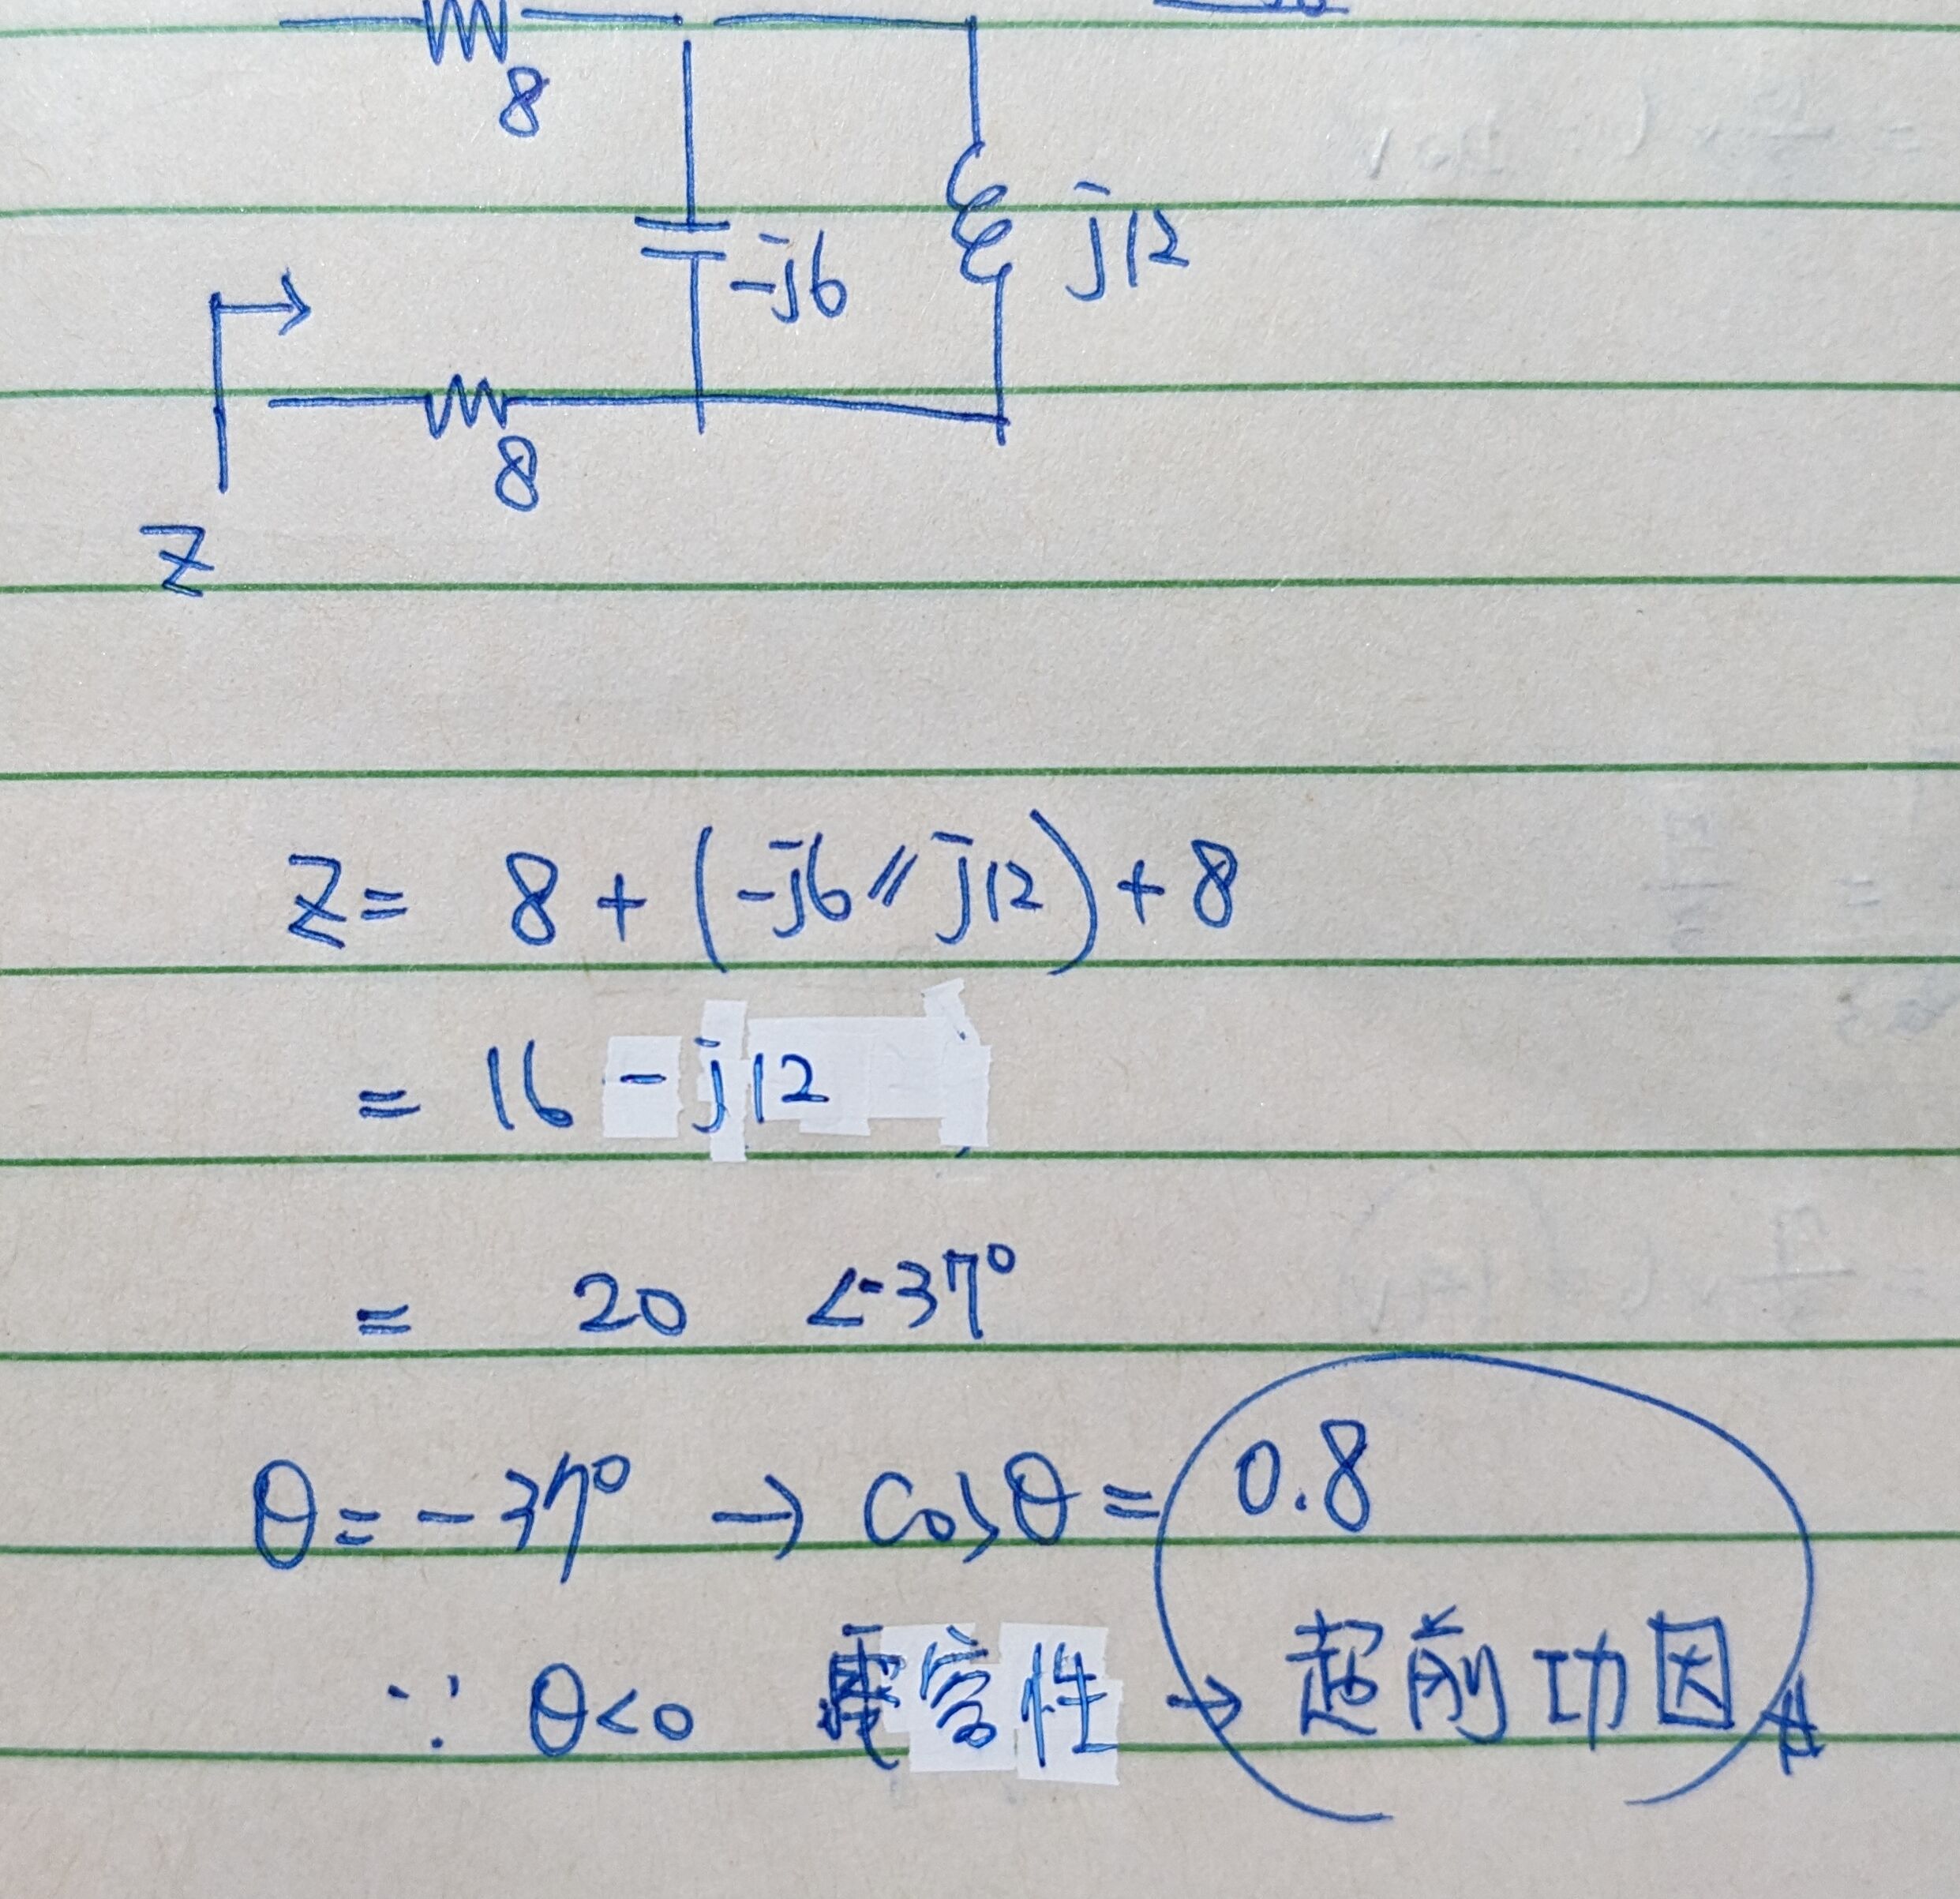 8
-j6
j12
8
Z
Z= 8 + (-j6 // j12) + 8
= 16 - j12
= 20 ∠-37°
θ = -37° → cosθ = 0.8
∵ θ<0 電容性 → 超前功因